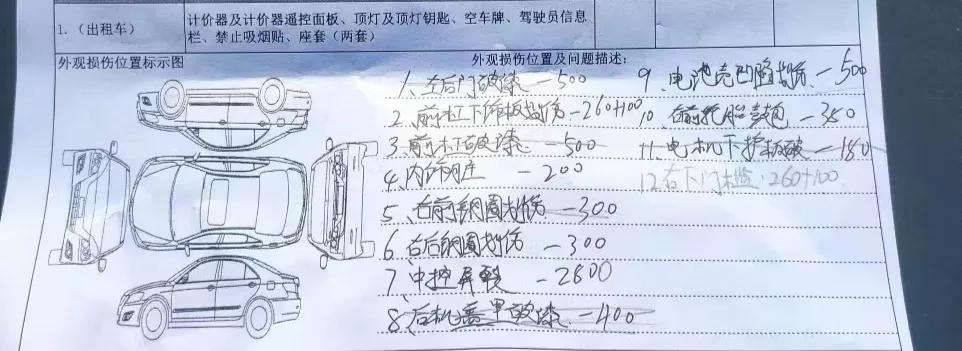 1.（出租车）
计价器及计价器遥控面板、顶灯及顶灯钥匙、空车牌、驾驶员信息
栏、禁止吸烟贴、座套（两套）
外观损伤位置标示图
外观损伤位置及问题描述：
1、右后门破漆 -500
2、前杠下饰板划伤 -260+100
3、前杠破漆 -500
4、内饰 -200
5、右前钢圈划伤 -300
6、右后钢圈划伤 -300
7、中控屏裂 -2800
8、后机盖 破漆 -400
9、电池壳凹陷划伤 -500
10、右前轮胎鼓包 -350
11、电机下护板破 -180
12.右下门槛.260+100